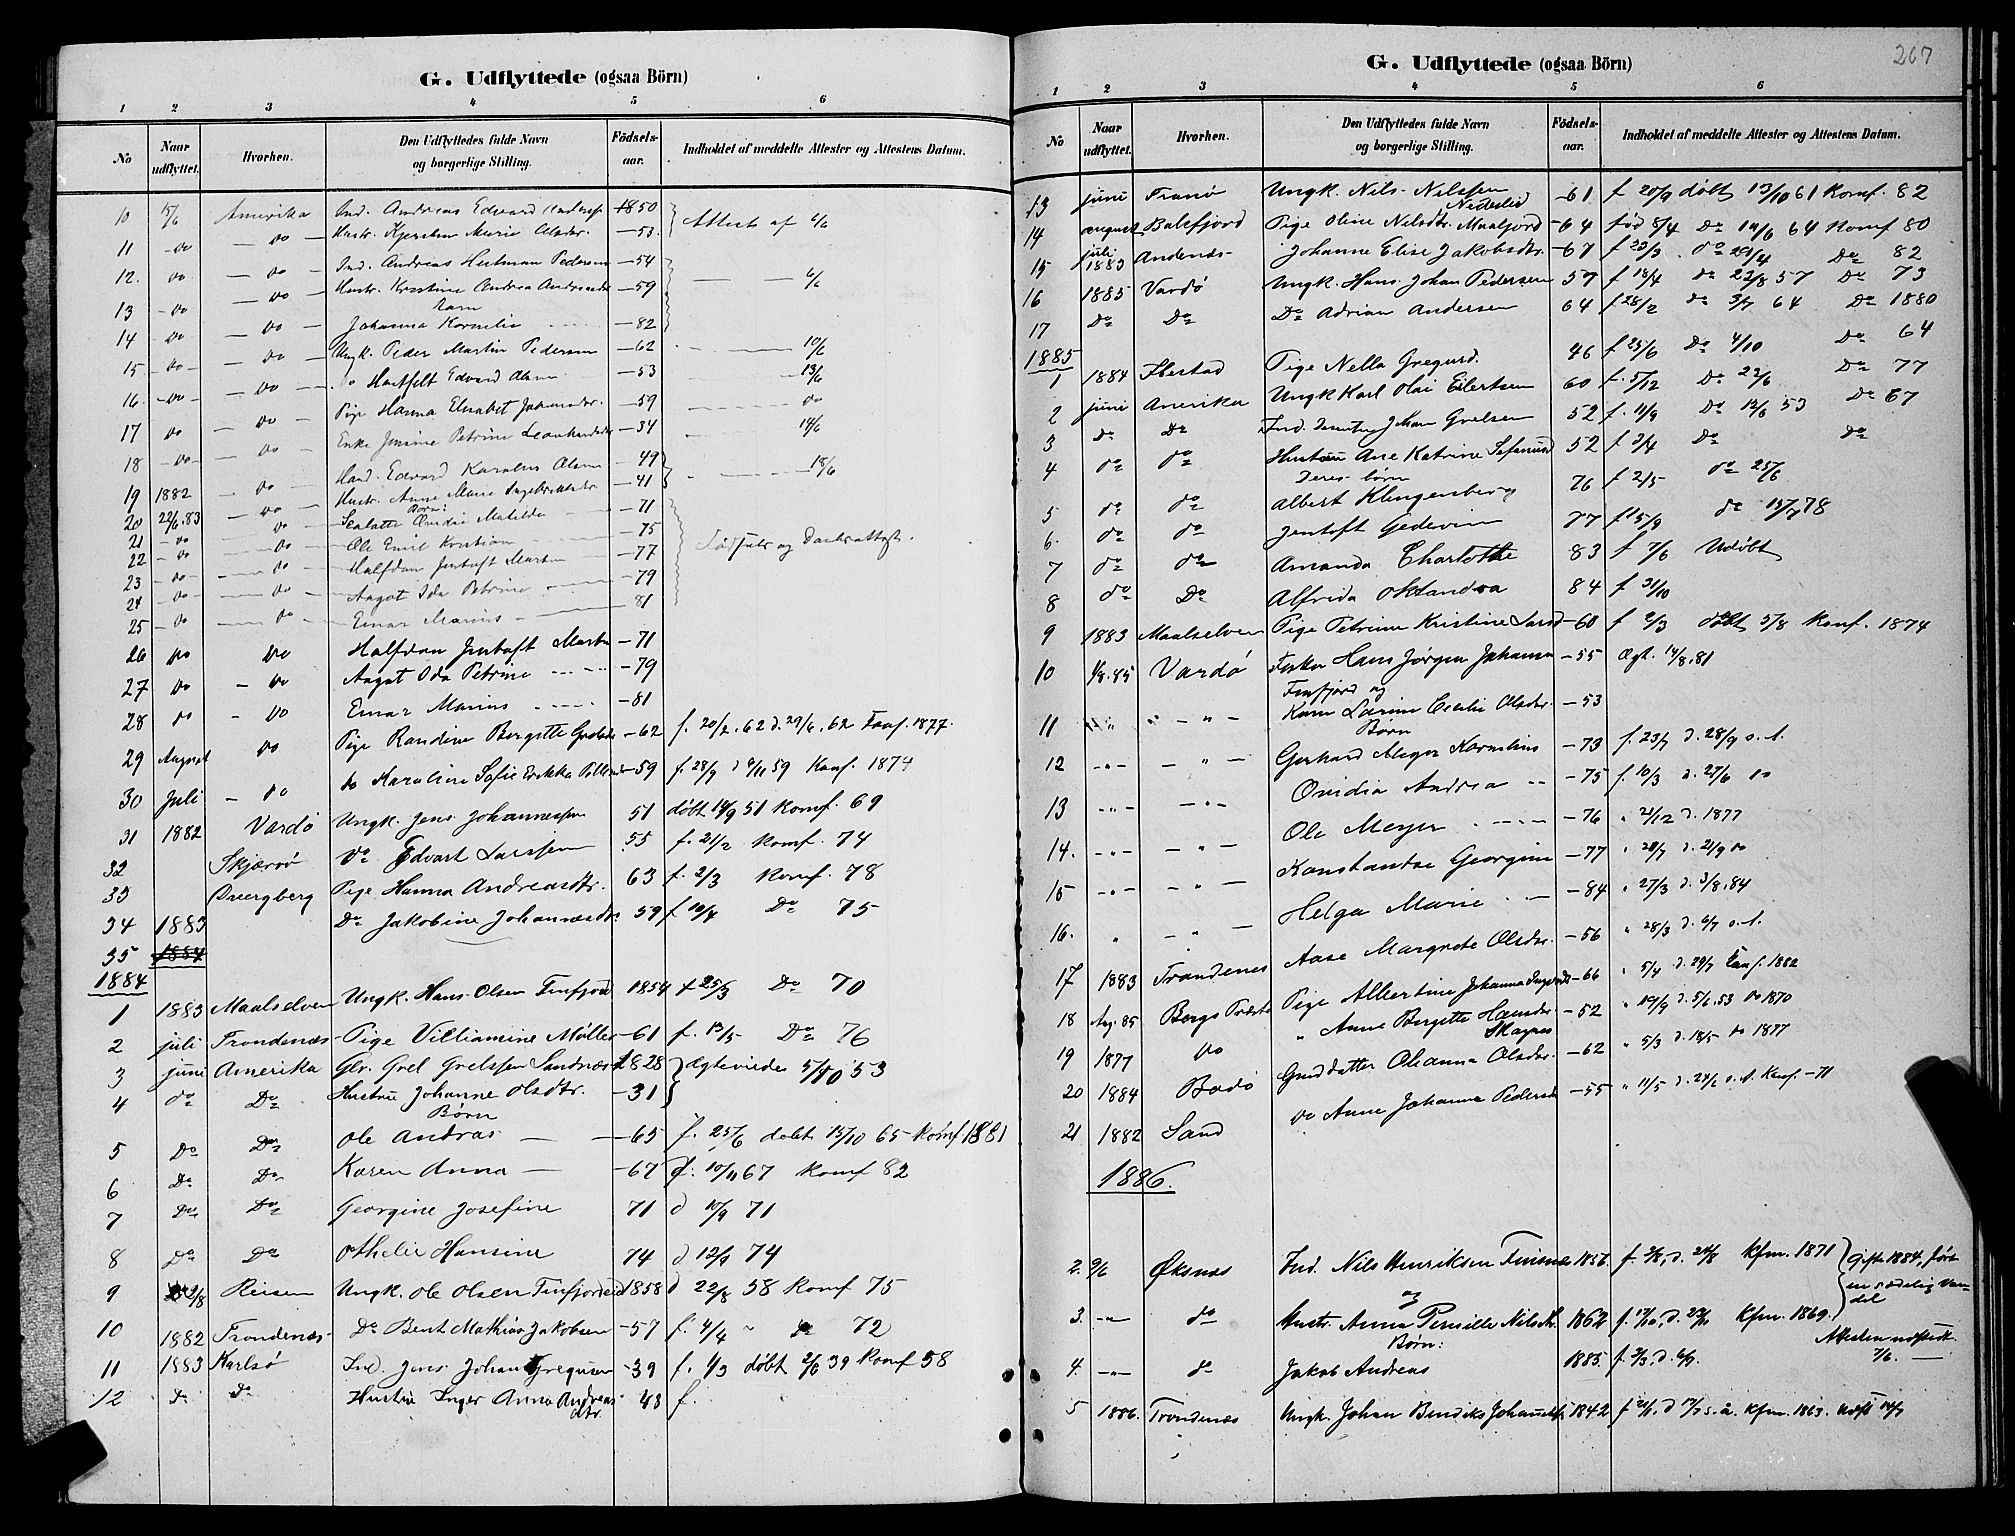 G. Udflyttede (ogsaa Börn)
1 2 3 4 5 6
No
Naar udflyttet.
Hvorhen.
Den Udflyttedes fulde Navn og borgerlige Stilling.
Födsels-aar.
Indholdet af meddelte Attester og Attestens Datum.
10 15/6 Amerika Ind. Andreas Edvard 1850 Attest af 6/6
11 - do - do - Hustr. Kjersten Marie Olsdr. - 53
12. do - do - Ind. Andreas Hartman Pedersen - 54
13 - do - do - Hustr. Kristine Andrea - 59 6/6
Barn
14 do - do - Johanna Kornelia - 82
15 - do - do - Ungk. Peder Martin Pedersen - 62 10/6
16. - do - do - do Hartfelt Edvard Olsen - 53 13/6
17 do - do Pige Hanna Elisabet - 59 do
18 - do - do - Enke Jensine Petrine - 34 14/6
19 1882 - do - Hand. Edvard Karolius Olsen - 49 18/6
20 22/6.83 - do - Hustr. Anne Marie - 41
Børn:
21 do do Ovidie Matilde - 71
22 - do do Ole Emil Kristian - 75 og Daabsattest.
23 - do - do - Halfdan Jentoft Martin - 77
24 - do - do - Aagot Ida Petrine - 79
25 - do - do - Einar Marius - 81
26 do do Halfdan Jentoft Martin - 71
27 do - do Aagot Ida Petrine - 79
28 do - do Einar Marius - 81
29 August do Pige Randine Bergitte - 62 f. 20/2.62 d. 29/6.62 Konf. 1877.
30 Juli - do do Karoline Sofie Erikka - 59 f. 28/9 d 6/11 59 Konf. 1874
31 1882 Vardø Ungk. Jens Johannessen 51 døbt 14/9 51 Komf. 69
32 Skjærvø Do Edvart Larssen 55 f. 21/2 Komf. 74
33 Dvergberg Pige Hanna Andreasdtr. 63 f. 2/3 Komf. 78
34 1883 Do Jakobine 59 f 12/4 Do 75
35 1884
1884
1 1883 Maalselven Ungk. Hans Olsen Finfjord 1854 f 25/3 Do 70
2 juli Trondenæs Pige Villiamine Møller - 61 f. 13/5 Do 76
3 juni Amerika Gbr. Grel Grelssen Sandnæs 1828 Ægteviede 5/10 53
4 do Do Hustru Johanne Olsdtr. - 31
Børn
5 Do Do Ole Andras - 65 f. 25/6 døbt 15/10 65 Komf 1881
6 Do Do Karen Anna - 67 f. 10/11 67 Komf 82
7 Do Do Georgine Josefine 71 d 10/9 71
8 Do Do Othelie Hansine 74 d 12/9 74
9 2/8 Reisen Ungk. Ole Olsen Finfjordeid 1858 d 22/8 58 Komf 75
10 1882 Trondenæs Do Bent Mathias Jakobsen - 57 f. 4/4 do 72
11 1883 Karlsø Ind. Jens Johan Gregusen - 39 f. 1/3 døbt 2/6 39 Komf 58
12 Do Do Hustru Inger Anna Andreasdtr. 43 f.
267
G. Udflyttede (ogsaa Börn)
1 2 3 4 5 6
No
Naar udflyttet.
Hvorhen.
Den Udflyttedes fulde Navn og borgerlige Stilling.
Födsels-aar.
Indholdet af meddelte Attester og Attestens Datum.
13 juni Tranø Ungk. Nils Nilssen - 61 f 20/9 døbt 13/10 61 Komf. 82
14 august Balsfjord Pige Oline Nilsdtr. Maalfjord - 64 fød 8/4 Do 12/6 64 Komf 80
15 juli 1883 Andenæs Johanne Elise Jakobsdtr. - 67 f 23/3 do 28/4 Do 82
16 1885 Vardø Ungk. Hans Johan Pedersen 57 f 18/4 do 23/8 57 Do 73
17 Do Do Do Adrian Andersen 64 f 28/2 do 3/7 64 Do 1880
1885
1 1884 Ibestad Pige Nella Gregusd. 46 f 25/6 Do 4/10 Do 64
2 juni Amerika Ungk Karl Olai Eilertsen 60 f. 5/12 Do 22/6 Do 77
3 Do Do Ind. Johan Grelsen 52 f. 11/9 Do 12/6 53 Do 67
4 do do Hustru Ane Katrine 52 f 3/4 Do Do
Deres børn
5 do do Albert Klingenberg 76 f 2/5 do 25/6
6. do do Jentoft Gedevin 77 f 15/9 do 15/7 78
7 do do Amanda Charlotthe 83 f 7/6 Udøbt
8 do Do Alfrida Oktandra 84 f 31/10
9 1883 Maalselven Pige Petrine Kristine Larsd - 60 f 2/3 døbt 5/8 Konf. 1874
10 1/8.85 Vardø Fisker Hans Jørgen Johansen - 55 Ægt. 14/8.81
Finfjord og
11 " " - " - Kone Larine Cecilie Olsdtr. - 53
Børn
12 - " - - " - Gerhard Meyer Kornelius - 73 f. 23/7 d. 28/9 s. A.
13 - " - - " - Ovidia Andrea - 75 f. 10/3 d. 27/6 do
14. - " - - " - Ole Meyer - 76 " 21/12 d. 1877
15 - " - - " - Konstantse Georgine - 77 " 28/7 d. 21/9 do
16. " - " - Helga Marie - 84 " 27/3 d. 3/8.84
17 1883 Trondenes Aase Margrete Olsdtr. - 56 " 28/3 d. 6/7 s. A.
18 Aug. 85 Bergs Præstg Pige Albertine Johanna - 66 " 5/4 d. 29/7 Konf. 1882
19 1877 do " Anne Bergitte Hansdr. - 52 " 19/9 d. 5/6.53 do 1870
20 1884 Bodø Gaarddatter Olianna Olsdtr. - 62 " 5/3 d. 18/5 do 1877
21 1882 Sand do Anne Johanna Pedersd - 55 " 11/5 d. 24/6 s. A. Konf. - 71
1886.
2. 9/6 Øksnæs Ind. Nils Henriksen 1856. f. 2/8, d. 24/8 Kfm. 1871 Gift 1884, ført en sædelig Vandel
og
3. - " - do Hustr. Anna Pernille Nilsdtr. 1862 f. 17/10, d. 23/11 Kfm. 1869. Attesten udstedt 7/6.
Børn:
4. - " - do Jakob Andreas 1885. f. 2/3, d. 6/9.
5 1886. Trondenæs Ungk. Johan Bendiks 1842 f 21/1, d 17/7 s. a. Kfm. 1863. Udst 14/7